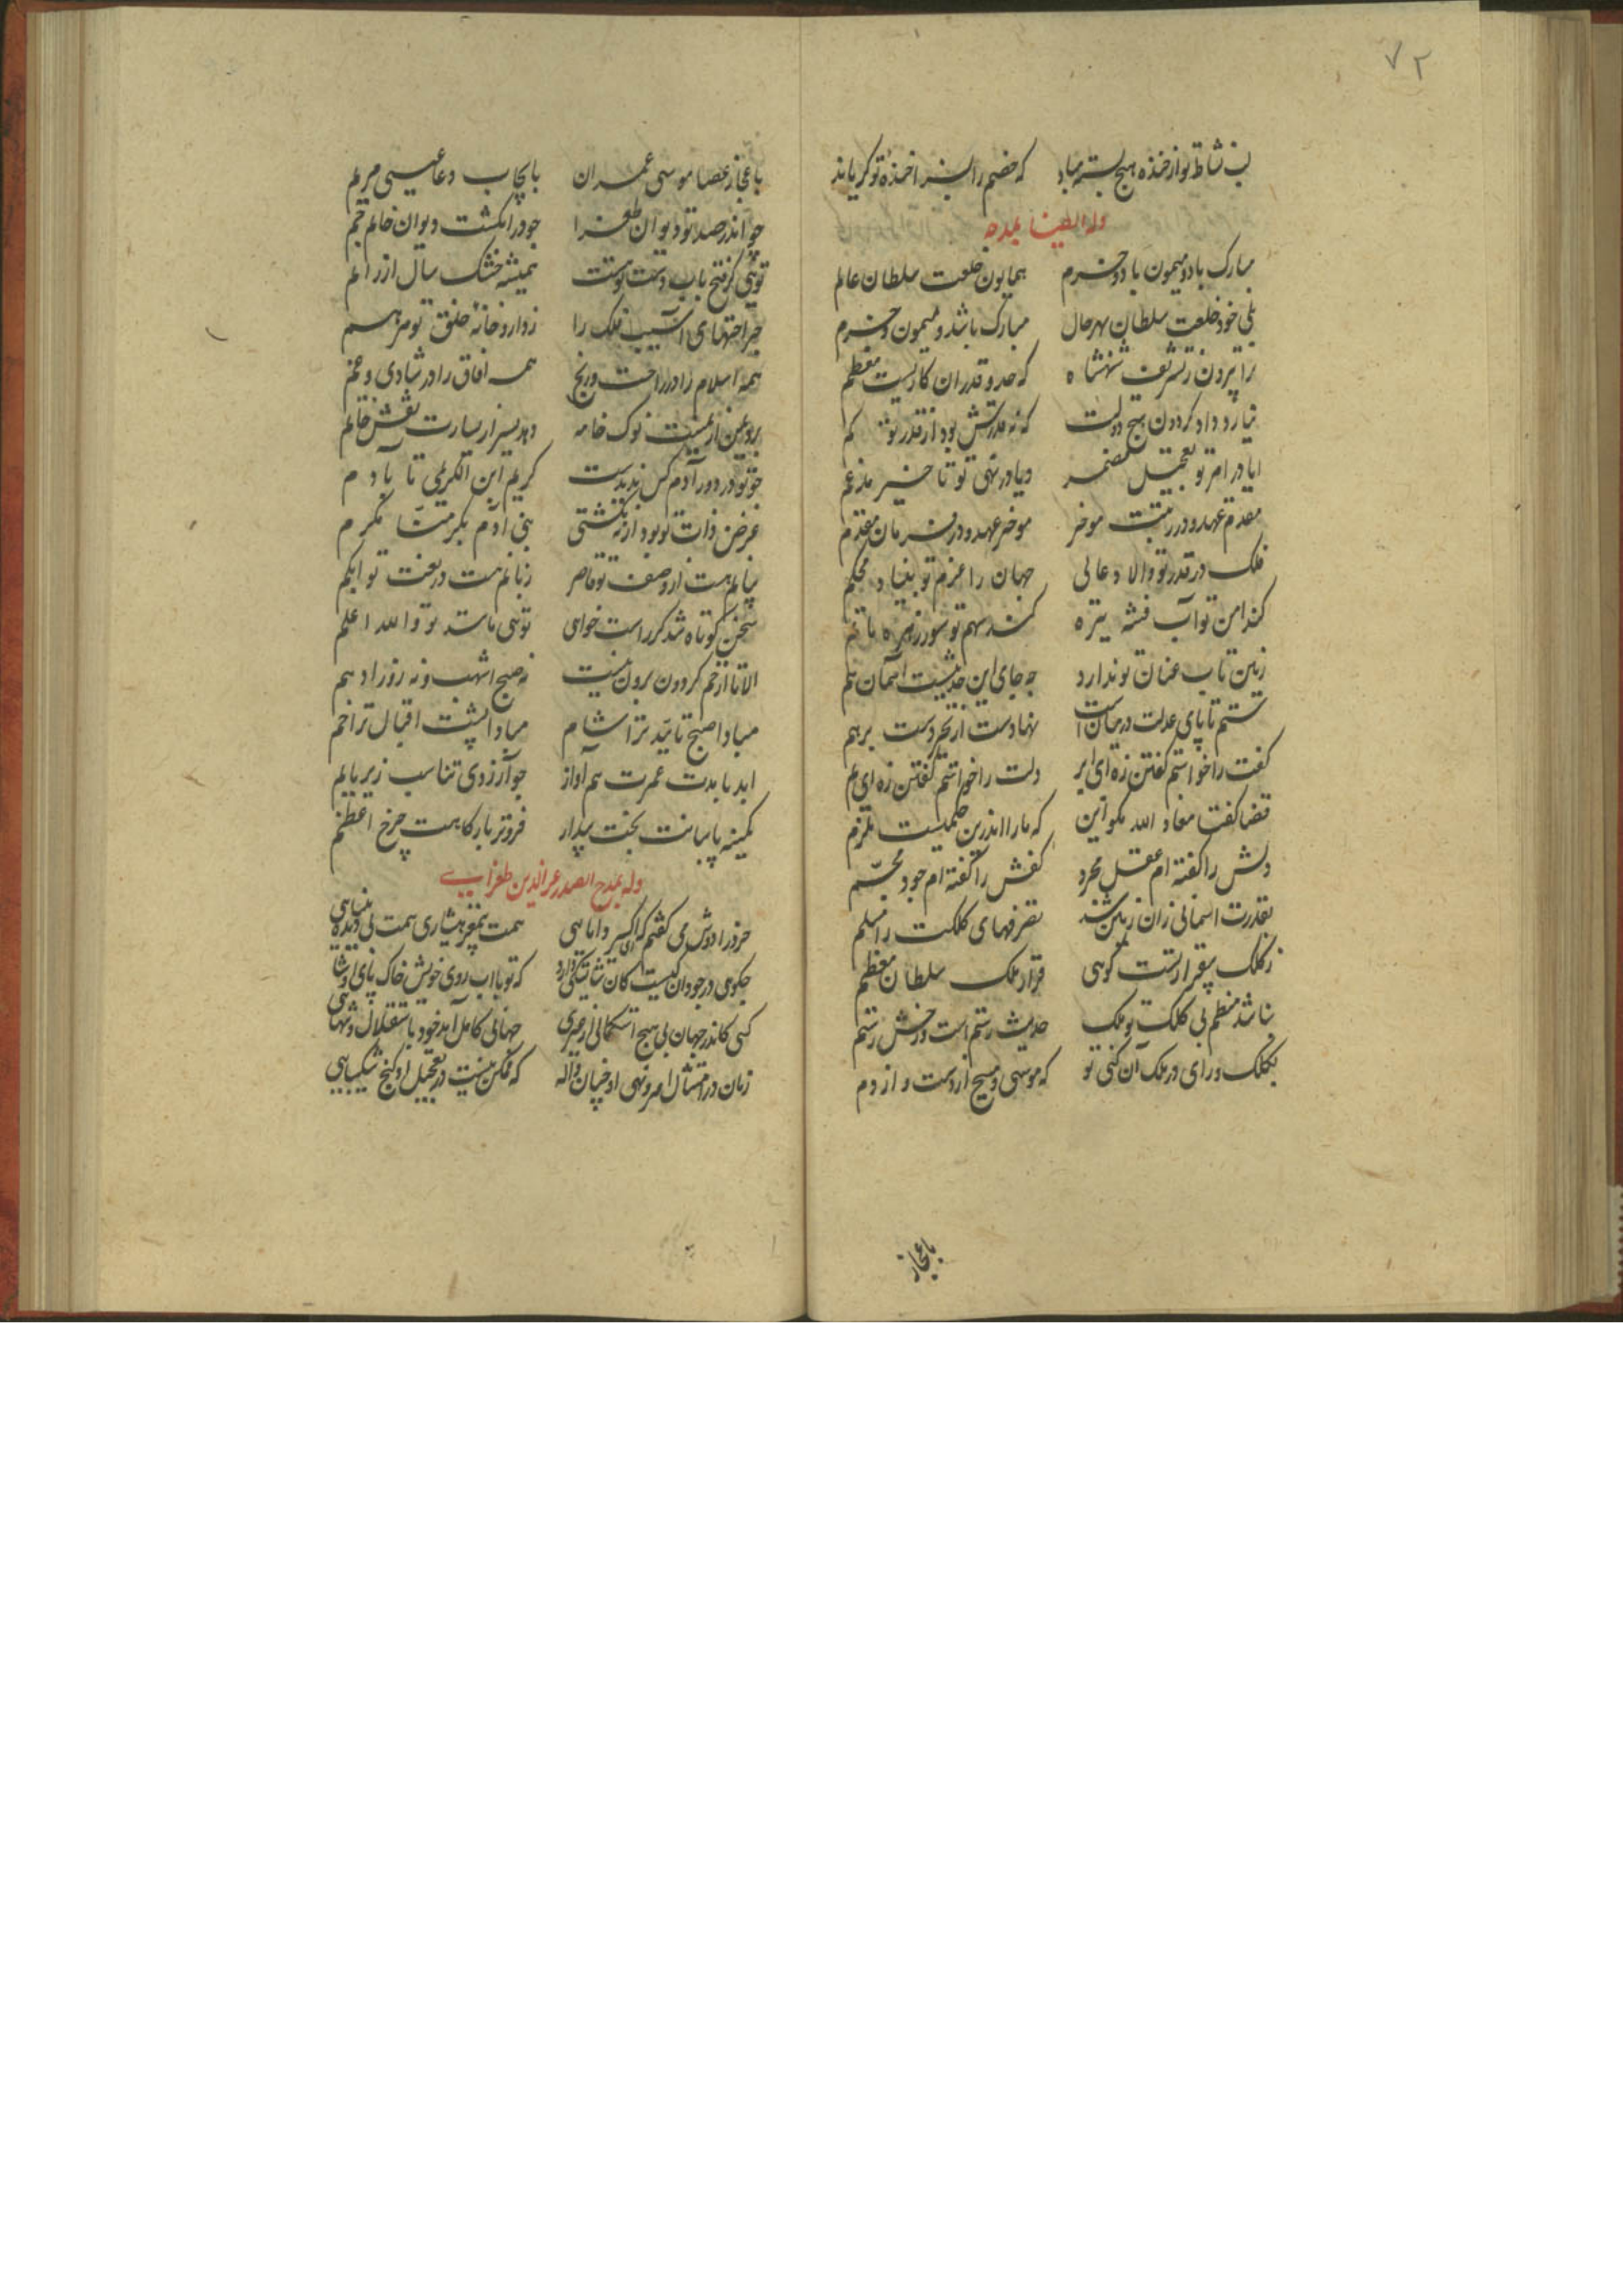 ۷۲
لب نشاط تو از خنده هیچ بسته مباد
که خصم را بسزا خندهٔ تو گریاند
وله ایضا بمدحه
مبارک باد و میمون باد و خرم
همایون خلعت سلطان عالم
بلی خود خلعت سلطان بهر حال
مبارک باشد و میمون و خرم
ترا بیرون ز تشریف شهنشاه
که حد و قدر ان کاریست معظم
نیارد داد کردون هیچ دولت
که نه قدرش بود از قدر تو کم
ایا در امر تو تعجیل مضمر
ویا در نهی تو تاخیر مدغم
مقدم عهد و در رتبت موخر
موخر عهد و در فرمان مقدم
فلک در قدر تو والا و عالی
جهان را عزم تو بنیاد محکم
کند امن تو آب فتنه تیره
کند سهم تو سور زهره ماتم
زمین تاب عنان تو ندارد
چه جای این حدیثست اسمان هم
ستم تا پای عدلت در میان است
نهادست از تحیر دست برهم
کفت را خواستم گفتن زه ای ابر
دلت را خواستم گفتن زه ای یم
قضا گفت معاذ الله مگو این
که ما را اندرین حکمیست ملزم
دلش را گفته ام عقل مجرد
کفش را گفته ام جود مجسم
بقدرت اسمانی زان زمین شد
تصرفهای کلکت را مسلم
ز کلک بیقرار تست گویی
قرار ملک سلطان معظم
نباشد منظم بی کلک تو ملک
حدیث رستم است و رخش رستم
بکلک و رای در ملک آن کنی تو
که موسی و مسیح از دست و از دم
باعجاز
باعجاز عصا موسی عمران
بایجاب دعا عیسی مریم
چو اندر صدر تو دیوان طغرا
چو در انگشت دیوان خاتم جم
تویی کز فتح باب دست تو هست
همیشه خشک سال از را نم
جراحتهای آسیب فلک را
ز داروخانهٔ خلق تو مرهم
همه اسلام را در راحت و رنج
همه افاق را در شادی و غم
برد یمن از یمینت نوک خامه
دهد یسر از یسارت نقش خاتم
چو تو در دور آدم کس ندیدست
کریم ابن الکریمی تا بآدم
غرض ذات تو بود ار نه نگشتی
بنی آدم بکرمنا مکرم
بیانم هست از وصف تو قاصر
زبانم هست در نعت تو ابکم
سخن کوتاه شد گر راست خواهی
تویی مانند تو والله اعلم
الا تا از خم کردون برون نیست
نه صبح اشهب و نه روز ادهم
مبادا صبح تایید ترا شام
مبادا پشت اقبال ترا خم
ابد با مدت عمرت هم آواز
چو آرزوی تناسب زیر با بم
کمینه پاسبانت بخت بیدار
فروتر بارگاهت چرخ اعظم
وله بمدح الصدر عزالدین طغرایی
خرد را دوش می گفتم که ای اکسیر دانایی
همت بیمغز هشیاری همت بی دیده بینایی
چگویی در وجود ان کیست کان شایستگی دارد
که تو با اب روی خویش خاک پای او شایی
کسی کاندر جهان بی هیچ استکمالی از غیری
جهانی کامل آید خود باستقلال و تنهایی
زمان در امتثال امر و نهی او چنان واله
که ممکن نیست در تعجیل او گنج شکیبایی